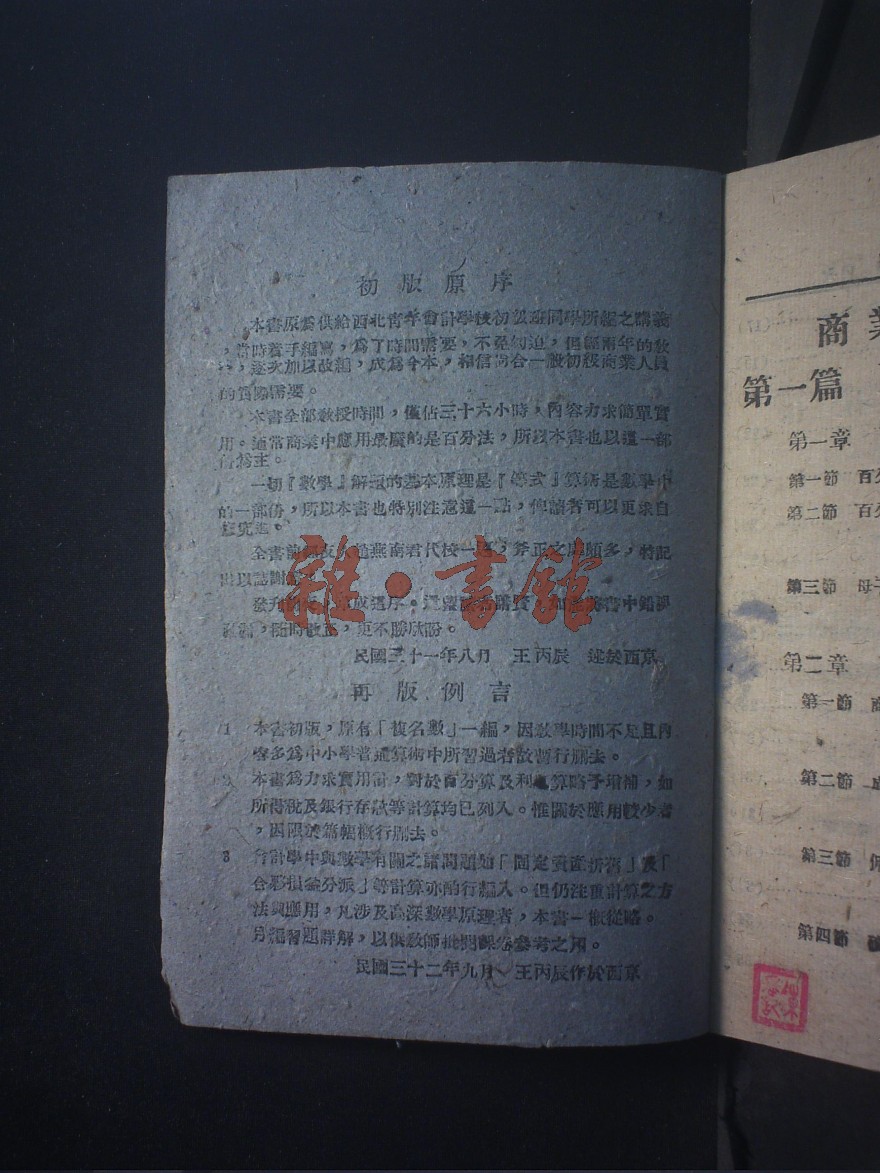 初版原序
本書原爲供給西北青年會計學校初級班同學所編之講義
，當時着手編寫，爲了時間需要，不免匆迫，但經兩年的教
，逐次加以改編，成爲今本，相信尚合一般初級商業人員
的實際需要。
本書全部教授時間，僅佔三十六小時，內容力求簡單實
用。通常商業中應用最廣的是百分法，所以本書也以這一部
爲主。
一切『數學』解題的基本原理是『等式』算術是數學中
的一部份，所以本書也特別注意這一點，俾讀者可以更求自
究進。
全書 燕南君代校一遍，斧正之處頗多，特記
出以誌謝
成這序。還 書中錯誤
，隨時改正，更不勝欣盼。
民國三十一年八月 王丙辰 述於西京
再版例言
1 本書初版，原有「複名數」一編，因教學時間不足且內
容多爲中小學普通算術中所習過者故暫行刪去。
2 本書爲力求實用計，對於百分算及利息算略予增補，如
所得稅及銀行存款等計算均已列入。惟關於應用較少者
，因限於篇幅概行刪去。
3 會計學中與數學有關之諸問題如「固定資產折舊」及「
合夥損益分派」等計算亦酌行編入。但仍注重計算之方
法與應用，凡涉及高深數學原理者，本書一概從略。
另編習題詳解，以供教師批閱課卷參考之用。
民國三十二年九月 王丙辰作於西京
雜·書館
商業
第一篇
第一章
第一節 百分
第二節 百分
第三節 母子
第二章
第一節 商
第二節 成
第三節
第四節